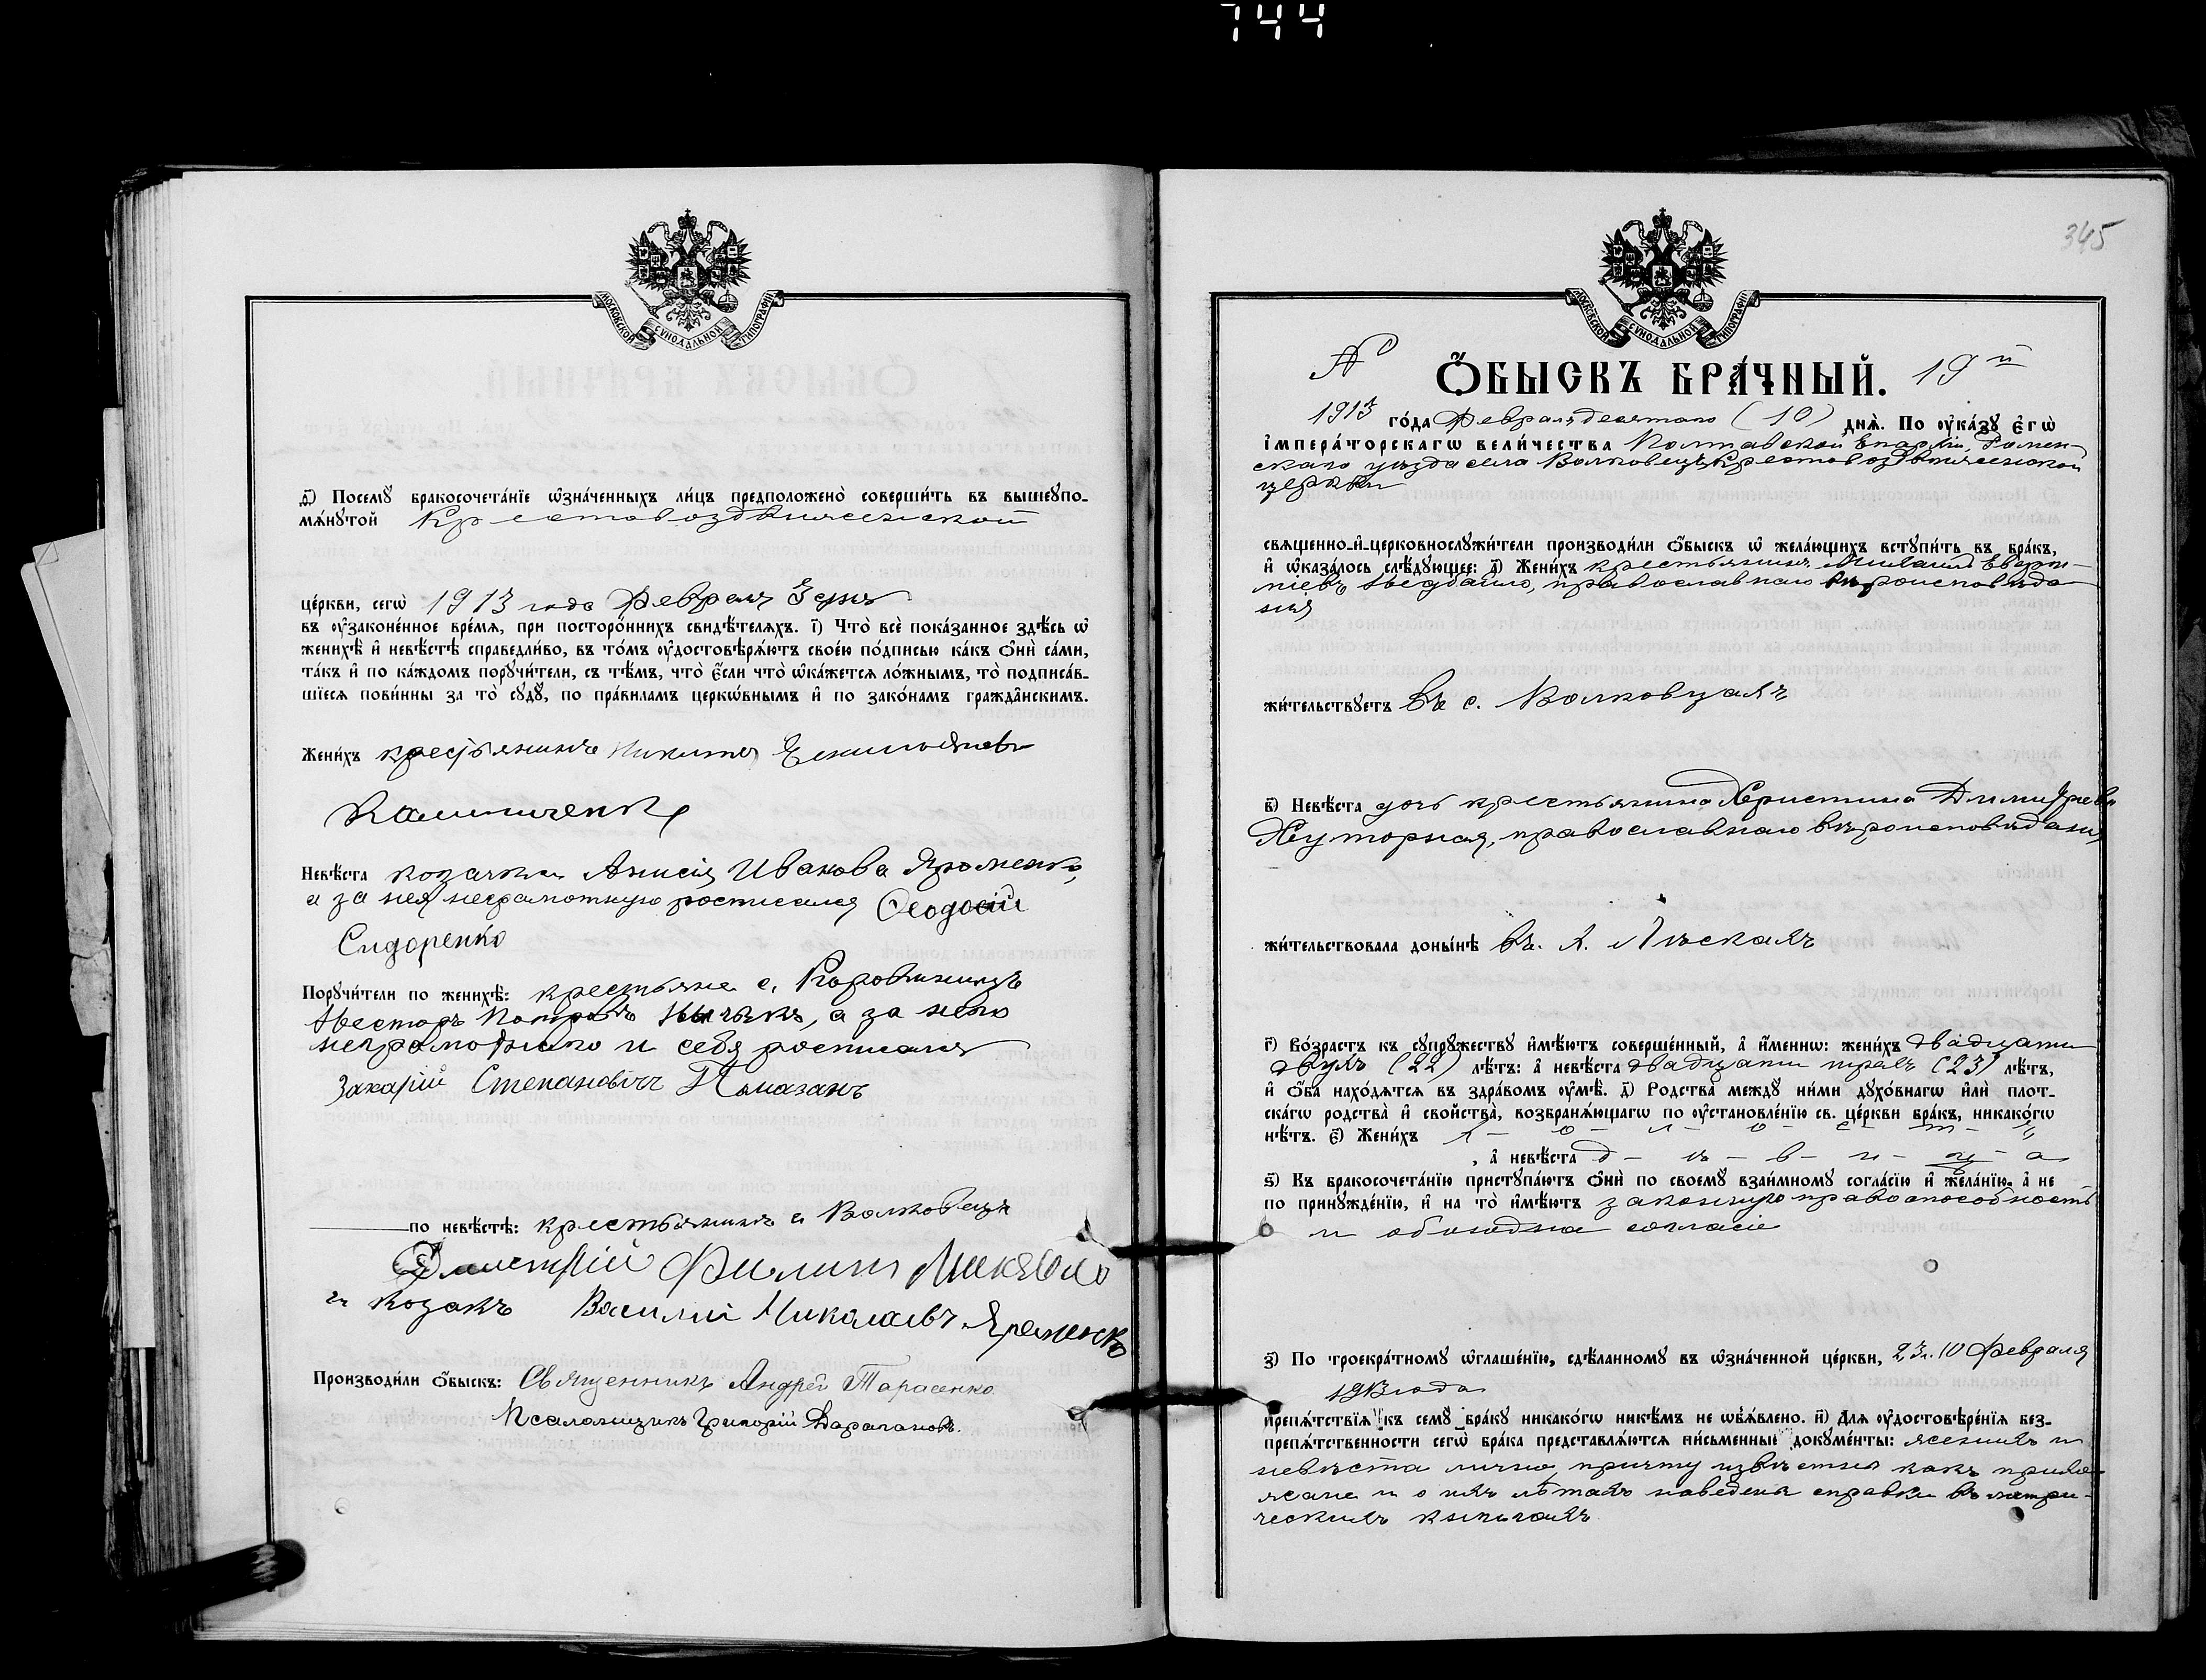 744
МОСКОВСКОЙ СѴНОДАЛЬНОЙ ТИПОГРАФІИ
ѳ҃) Посемꙋ̀ бракосочета́нїе ѡ҆зна́ченныхъ ли́цъ предположено̀ соверши́ть въ вышеꙋпо-
мѧ́нꙋтой Крестовоздвиженской
це́ркви, сегѡ̀ 1913 года Февраля 3 дня
въ ᲂу҆зако́ненное вре́мѧ, при посторо́ннихъ свидѣ́телѧхъ. і҃) Что̀ всѐ пока́занное здѣ́сь ѡ҆
женихѣ̀ и҆ невѣ́стѣ справедли́во, въ то́мъ ᲂу҆достовѣрѧ́ютъ свое́ю по́дписью ка́къ ѻ҆нѝ са́ми,
та́къ и҆ по ка́ждомъ порꙋчи́тели, съ тѣ́мъ, что̀ є҆́сли что̀ ѡ҆ка́жетсѧ ло́жнымъ, то̀ подписа́в-
шїесѧ пови́нны за то̀ сꙋдꙋ̀, по пра́виламъ церкѡ́внымъ и҆ по зако́намъ гражда̑нскимъ.
Жени́хъ крестьянинъ Никита
Калиниченко
Невѣ́ста козачка Анисія Иванова Яременко,
а за нея неграмотную росписался Ѳеодосій
Сидоренко
Порꙋчи́тели по женихѣ̀: крестьяне с. Коровинецъ
Несторъ, а за него
неграмотнаго и себя росписался
Захарій Степановичъ
по невѣ́стѣ: крестьянинъ с Волковецъ
Дмистрій Филипъ
и козакъ Василий Николаевъ Яременко
Производи́ли ѻ҆́быскъ: Священникъ Андрей Тарасенко
Псаломщикъ Григорій
345
МОСКОВСКОЙ СѴНОДАЛЬНОЙ ТИПОГРАФІИ
№ Ѻ҆́БЫСКЪ БРА́ЧНЫЙ. 19й
1913 го́да Февраля десятаго (10) днѧ̀. По ᲂу҆ка́зꙋ є҆гѡ̀
і҆мпера́торскагѡ вели́чества Полтавской Епархіи, Ромен-
скаго уѣзда села Волковецъ Крестовоздвиженской
церкви
свѧще́нно-и҆-церковнослꙋжи́тели производи́ли ѻ҆́быскъ ѡ҆ жела́ющихъ встꙋпи́ть въ бра́къ,
и҆ ѡ҆каза́лось слѣ́дꙋющее: а҃) Жени́хъ крестьянинъ Михаилъ
православнаго вѣроисповѣда
нія
жи́тельствꙋетъ въ с. Волковцахъ
в҃) Невѣ́ста дочь крестьянина Христина Димитріева
Хуторная, православнаго вѣроисповѣданія
жи́тельствовала доны́нѣ въ с. Пѣскахъ
г҃) Во́зрастъ къ сꙋпрꙋ́жествꙋ и҆мѣ́ютъ соверше́нный, а҆ и҆́меннѡ: жени́хъ двадцати
двухъ (22) лѣ́тъ: а҆ невѣ́ста двадцати трехъ (23) лѣ́тъ,
и҆ ѻ҆́ба нахо́дѧтсѧ въ здра́вомъ ᲂу҆мѣ̀. д҃) Родства̀ междꙋ̀ ни́ми дꙋхо́внагѡ и҆лѝ плот-
ска́гѡ родства̀ и҆ свойства̀, возбранѧ́ющагѡ по ᲂу҆становле́нїю св. це́ркви бра́къ, никако́гѡ
нѣ́тъ. є҃) Жени́хъ х-о-л-о-с-т-ъ
, а҆ невѣ́ста д-ѣ-в-и-ц-а
ѕ҃) Къ бракосочета́нїю пристꙋпа́ютъ ѻ҆нѝ по своемꙋ̀ взаи́мномꙋ согла́сїю и҆ жела́нїю, а҆ не
по принꙋжде́нїю, и҆ на то̀ и҆мѣ́ютъ законную правоспособность
и обоюдное согласіе
з҃) По троекра́тномꙋ ѡ҆глаше́нїю, сдѣ́ланномꙋ въ ѡ҆зна́ченной це́ркви, 2, 3 и 10 Февраля
1913 года
препѧ́тствїѧ къ семꙋ̀ бра́кꙋ никако́гѡ никѣ́мъ не ѡ҆б̾ѧ́влено. и҃) Длѧ ᲂу҆достовѣре́нїѧ без-
препѧ́тственности сегѡ̀ бра́ка представлѧ́ютсѧ пи́сьменные докꙋме́нты: женихъ и
невѣста лично причту извѣстны какъ прихо-
жане и о ихъ лѣтахъ наведены справки въ метри-
ческихъ книгахъ